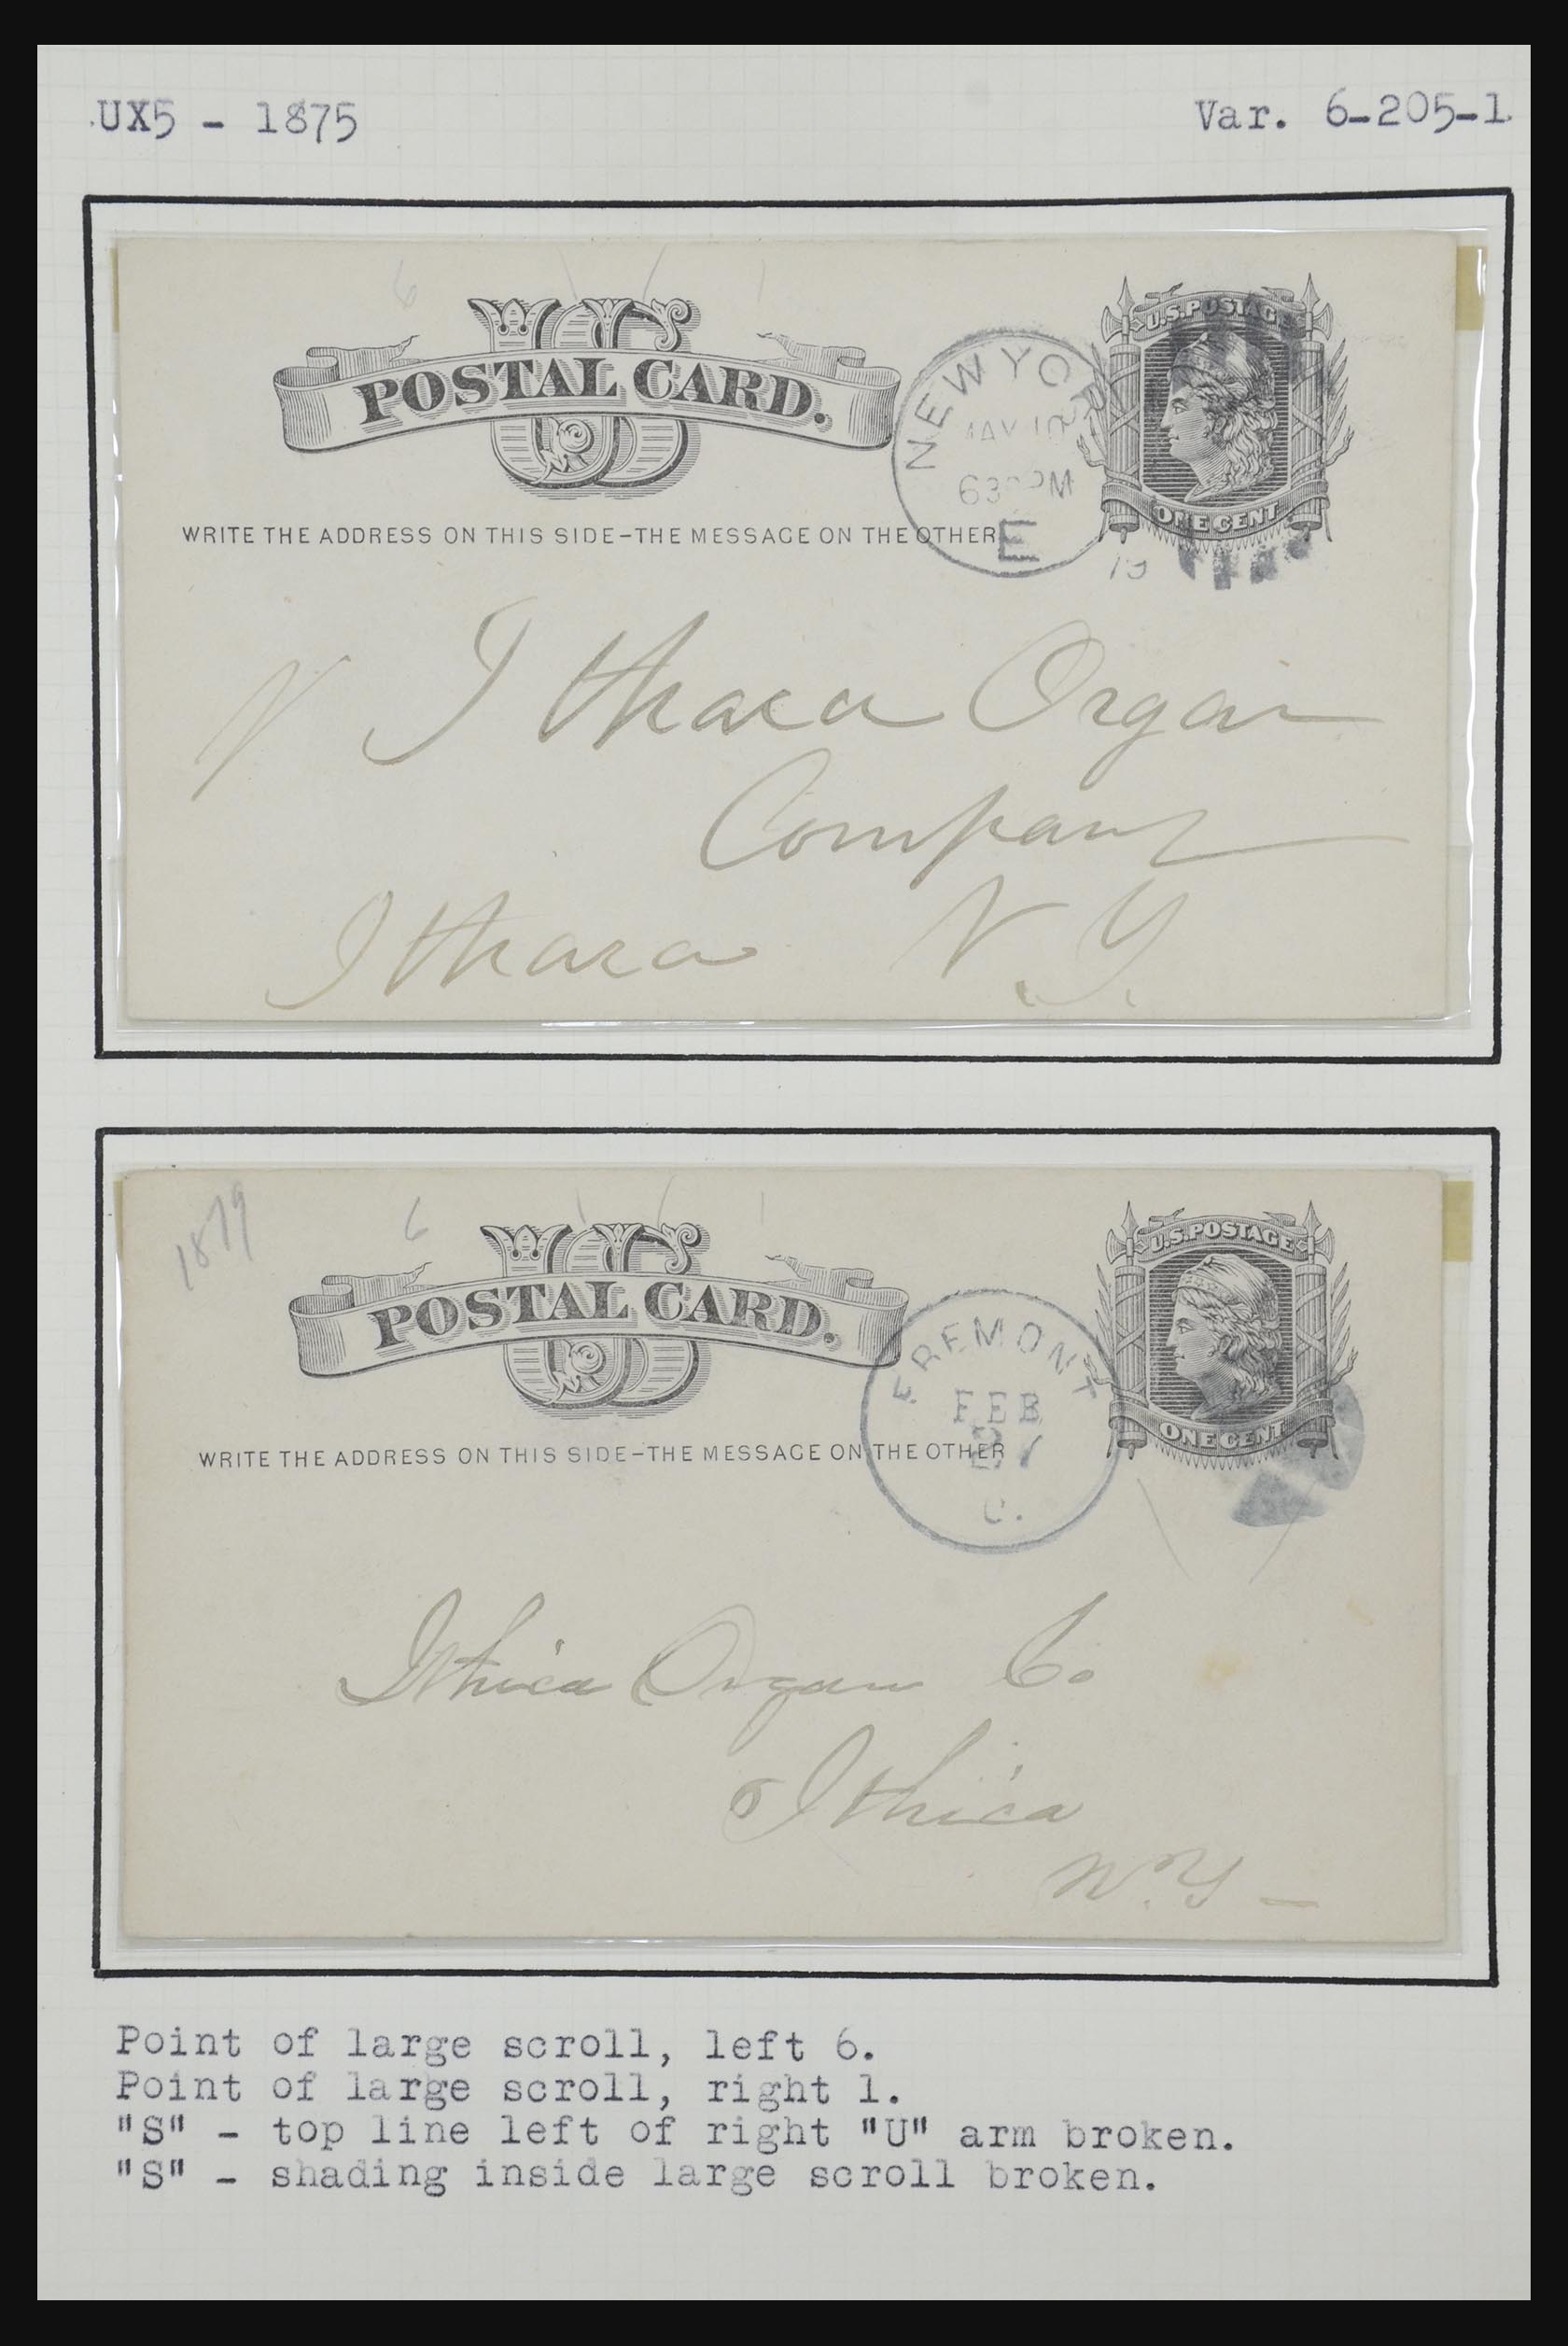 UX5 - 1875
Var. 6-205-1
6 \ / 1
US
POSTAL CARD.
U.S. POSTAGE
ONE CENT
NEW YOR
MAY 10
630 PM
E
WRITE THE ADDRESS ON THIS SIDE-THE MESSAGE ON THE OTHER
79
Ithaca Organ
Company
Ithaca N.Y.
1879
6 \ / 1
US
POSTAL CARD.
U.S. POSTAGE
ONE CENT
FREMONT
FEB
O.
WRITE THE ADDRESS ON THIS SIDE-THE MESSAGE ON THE OTHER
Ithica Organ Co
Ithica
N.Y -
Point of large scroll, left 6.
Point of large scroll, right 1.
"S" - top line left of right "U" arm broken.
"S" - shading inside large scroll broken.